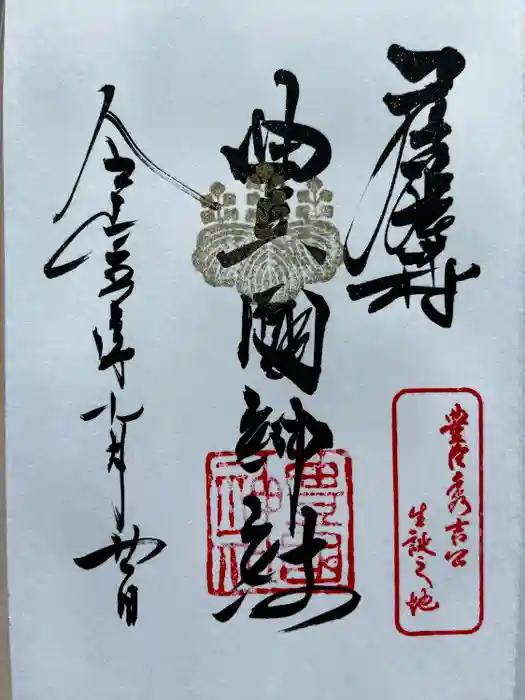 豊國神社
豊臣秀吉公
生誕之地
豊國
神社
令和五年九月廿日